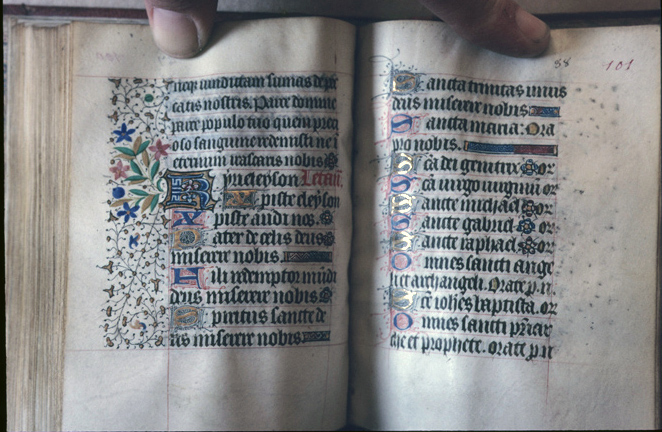 catis nostris. Parce domine
parce populo tuo quem prec
oso sanguine redemisti ne i
eternum irascaris nobis
kyrieleyson Letani.
Xpiste eleyson
Xpiste audi nos.
Pater de celis deus
miserere nobis.
Fili redemptor mūdi
deus miserere nobis
Spiritus sancte de
us miserere nobis
58
101
Sancta trinitas unus
deus miserere nobis
Sancta maria. Ora
pro nobis.
Scā dei genitrix or
Scā virgo virginū or
Sancte michael or
Sancte gabriel or
Sancte raphael or
Omnes sancti ange
li et archangeli. Orate p. n.
Scē iohēs baptista. or
Omnes sancti p̄riar
che et prophete. orate p. n